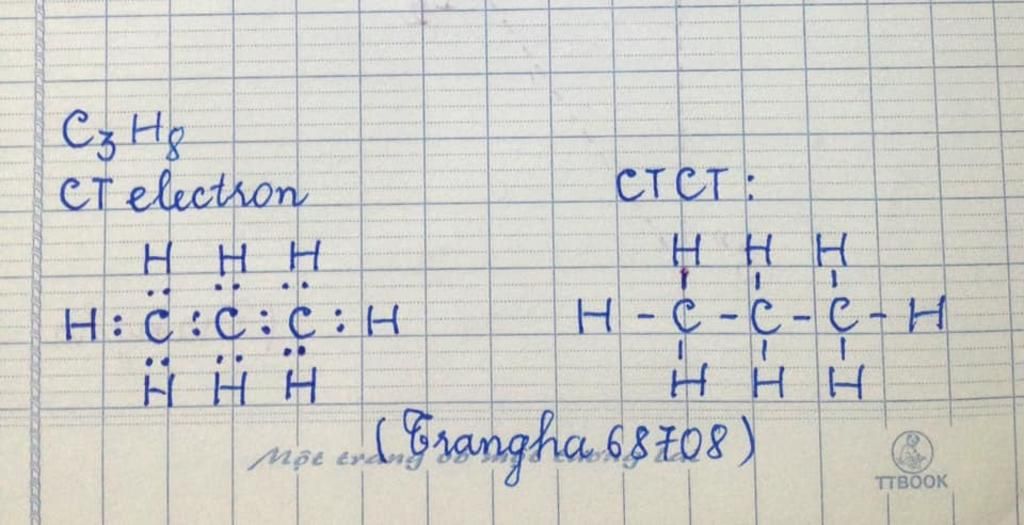 C₃H₈
CT electron
H H H
H : C : C : C : H
H H H
CTCT :
H H H
H - C - C - C - H
H H H
(Trangha 68708)
Một trang
TTBOOK